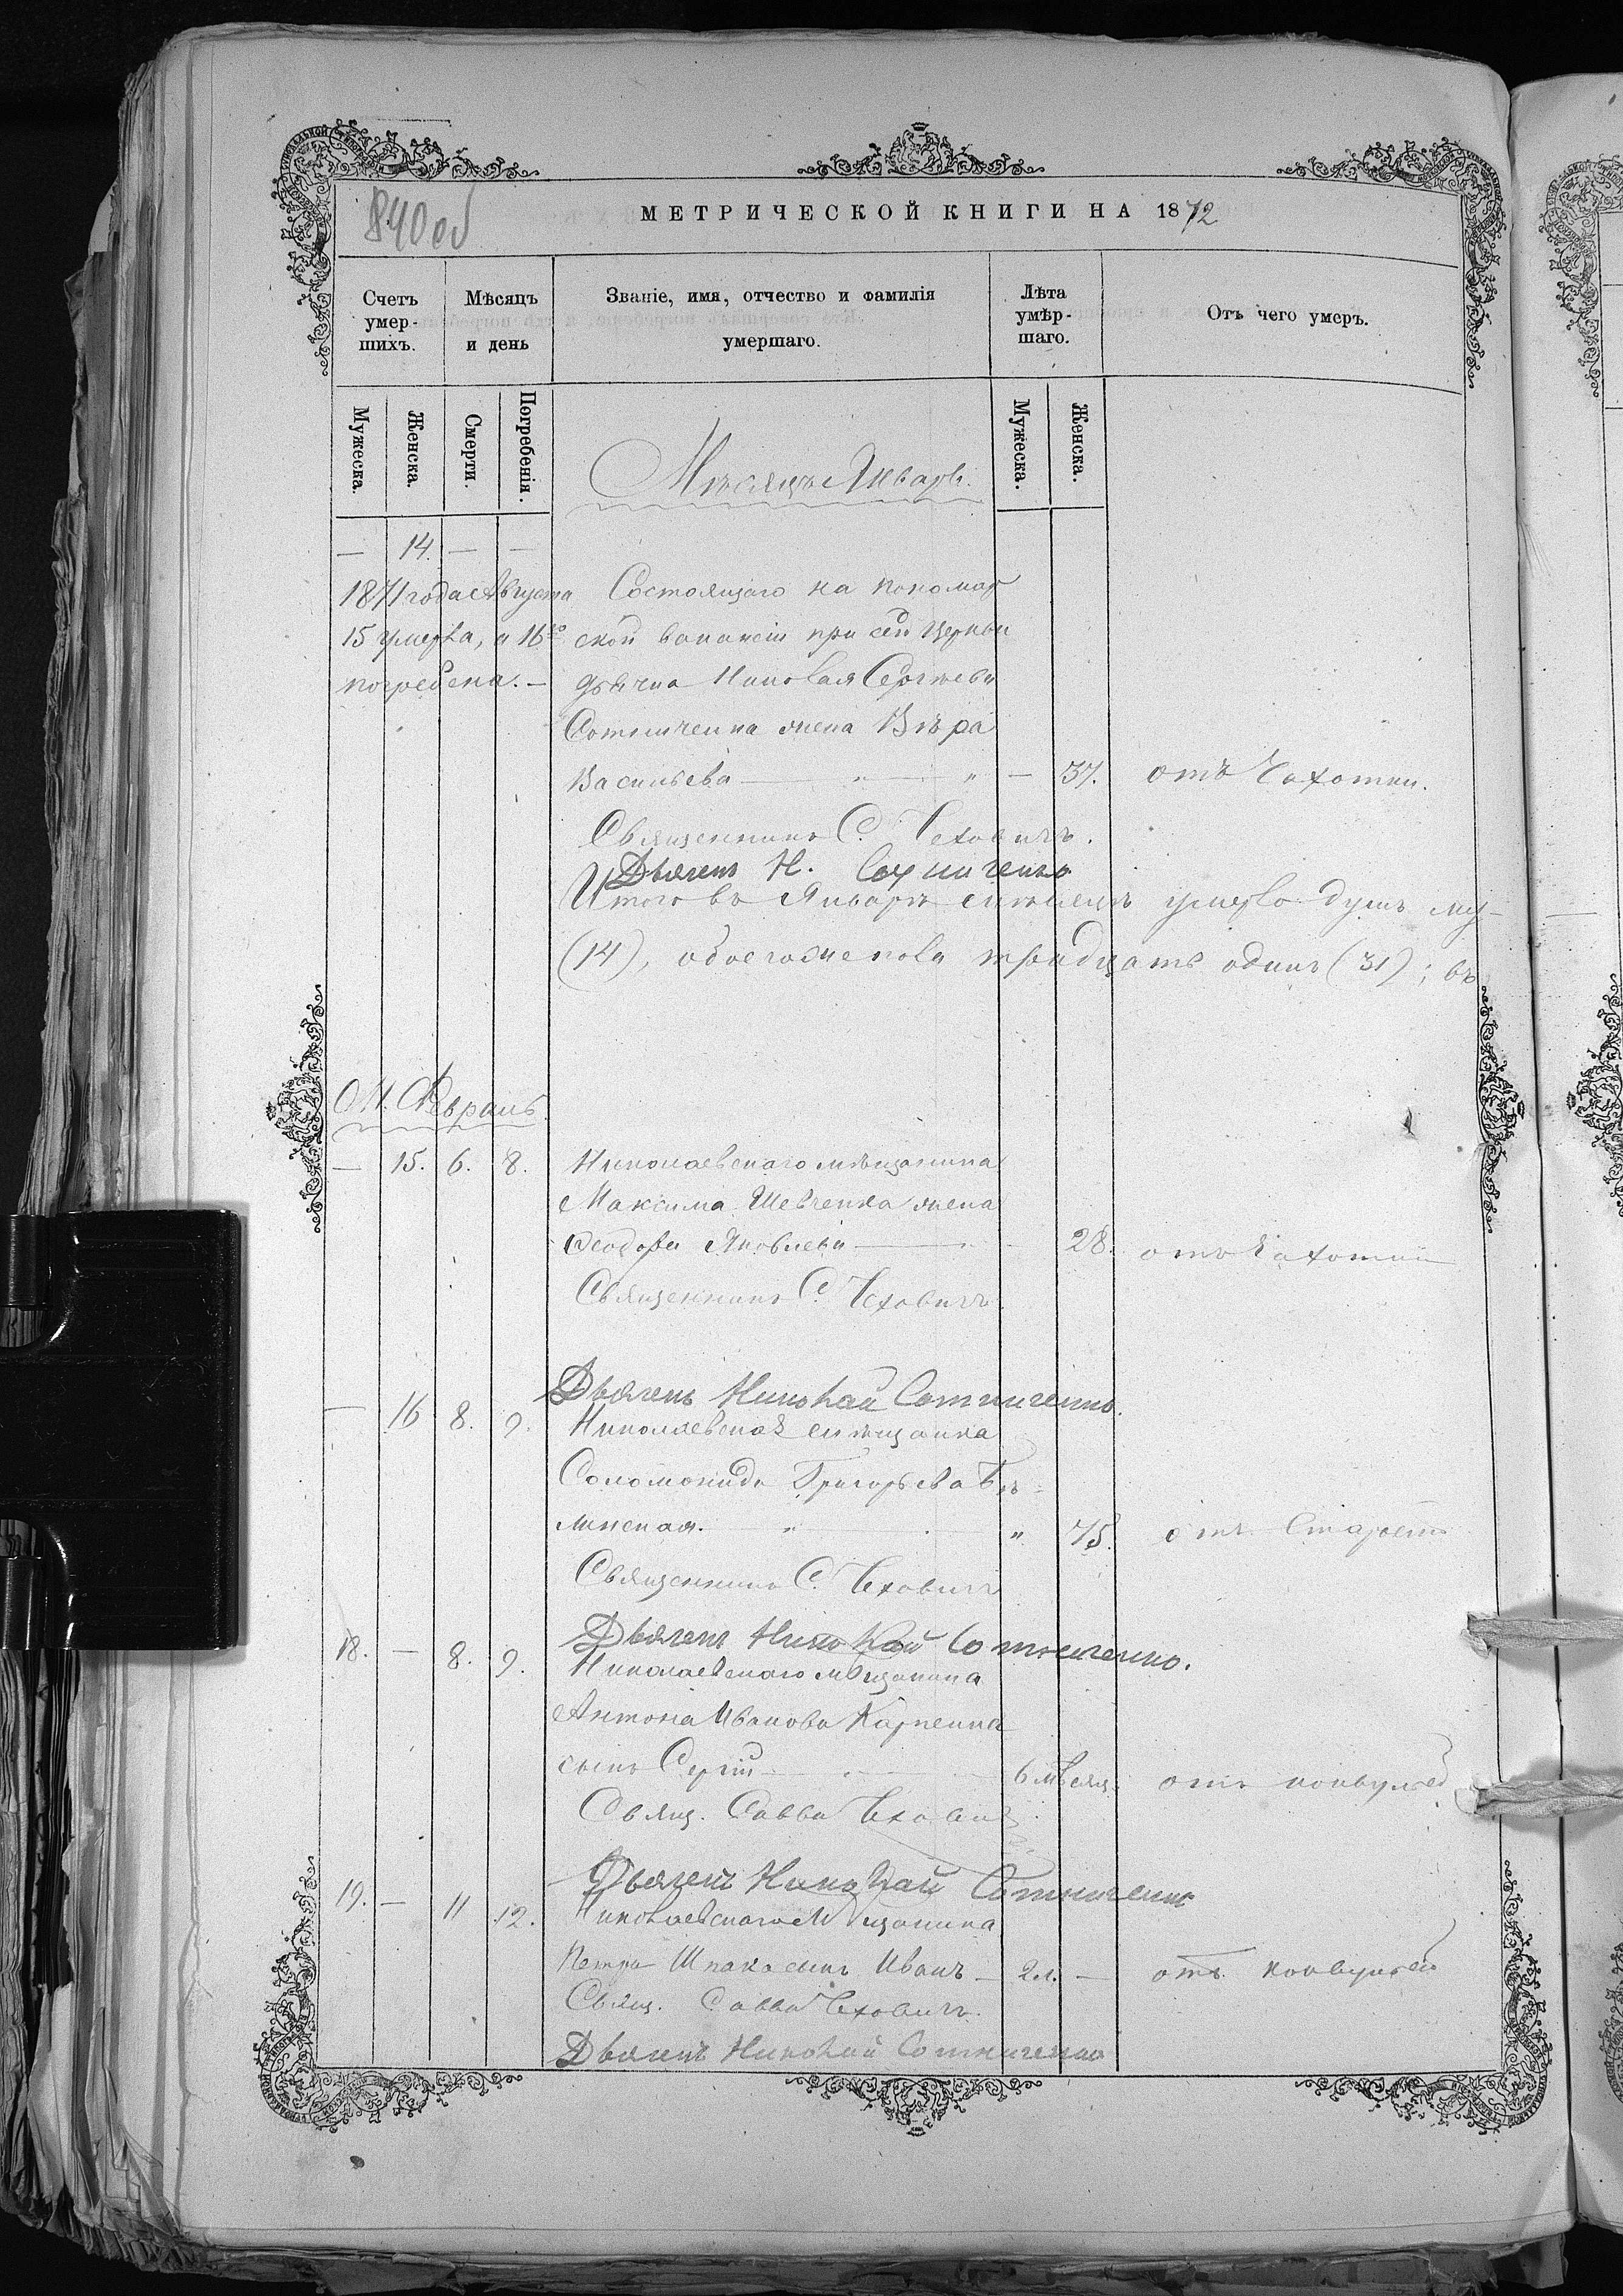 840об
МЕТРИЧЕСКОЙ КНИГИ НА 1872
Счетъ умер-шихъ.
Мѣсяцъ и день
Званіе, имя, отчество и фамилія умершаго.
Лѣта умѣр-шаго.
Отъ чего умеръ.
Мужеска. Женска. Смерти. Погребенія. Мужеска. Женска.
Мѣсяцъ Январь.
— 14. — —
1871 года Августа Состоящаго на пономар
15 умерла, а 16го ской вакансіи при сей Церкви
погребена. — дьячка Николая Сергѣева
Сотниченка жена Вѣра
Васильева — " — " — 37. отъ Чахотки.
Священникъ С. Чеховичъ.
Дьячекъ Н. Сотниченко
Итого въ Январѣ мѣсяцѣ умерло душъ му-
(14), обоего же пола тридцать одинъ (31); въ
М. Февраль.
— 15. 6. 8. Николаевскаго мѣщанина
Максима Шевченка жена
Ѳеодора Яковлева — 28. отъ Чахотки
Священникъ С. Чеховичъ.
Дьячекъ Николай Сотниченко.
— 16 8. 9. Николаевская мѣщанка
Соломонида Григорьева Бѣ-
линская. " — " 75. отъ Старости
Священникъ С. Чеховичъ
Дьячекъ Николай Сотниченко.
18. — 8. 9. Николаевскаго мѣщанина
Антона Иванова Карпенка
сынъ Сергій — 6 мѣсяц. отъ конвульсій
Свящ. Савва Чеховичъ
Дьячекъ Николай Сотниченко
19. — 11 12. Николаевскаго Мѣщанина
Петра Шпака сынъ Иванъ — 2 л. — отъ конвульсій
Свящ. Савва Чеховичъ.
Дьячекъ Николай Сотниченко